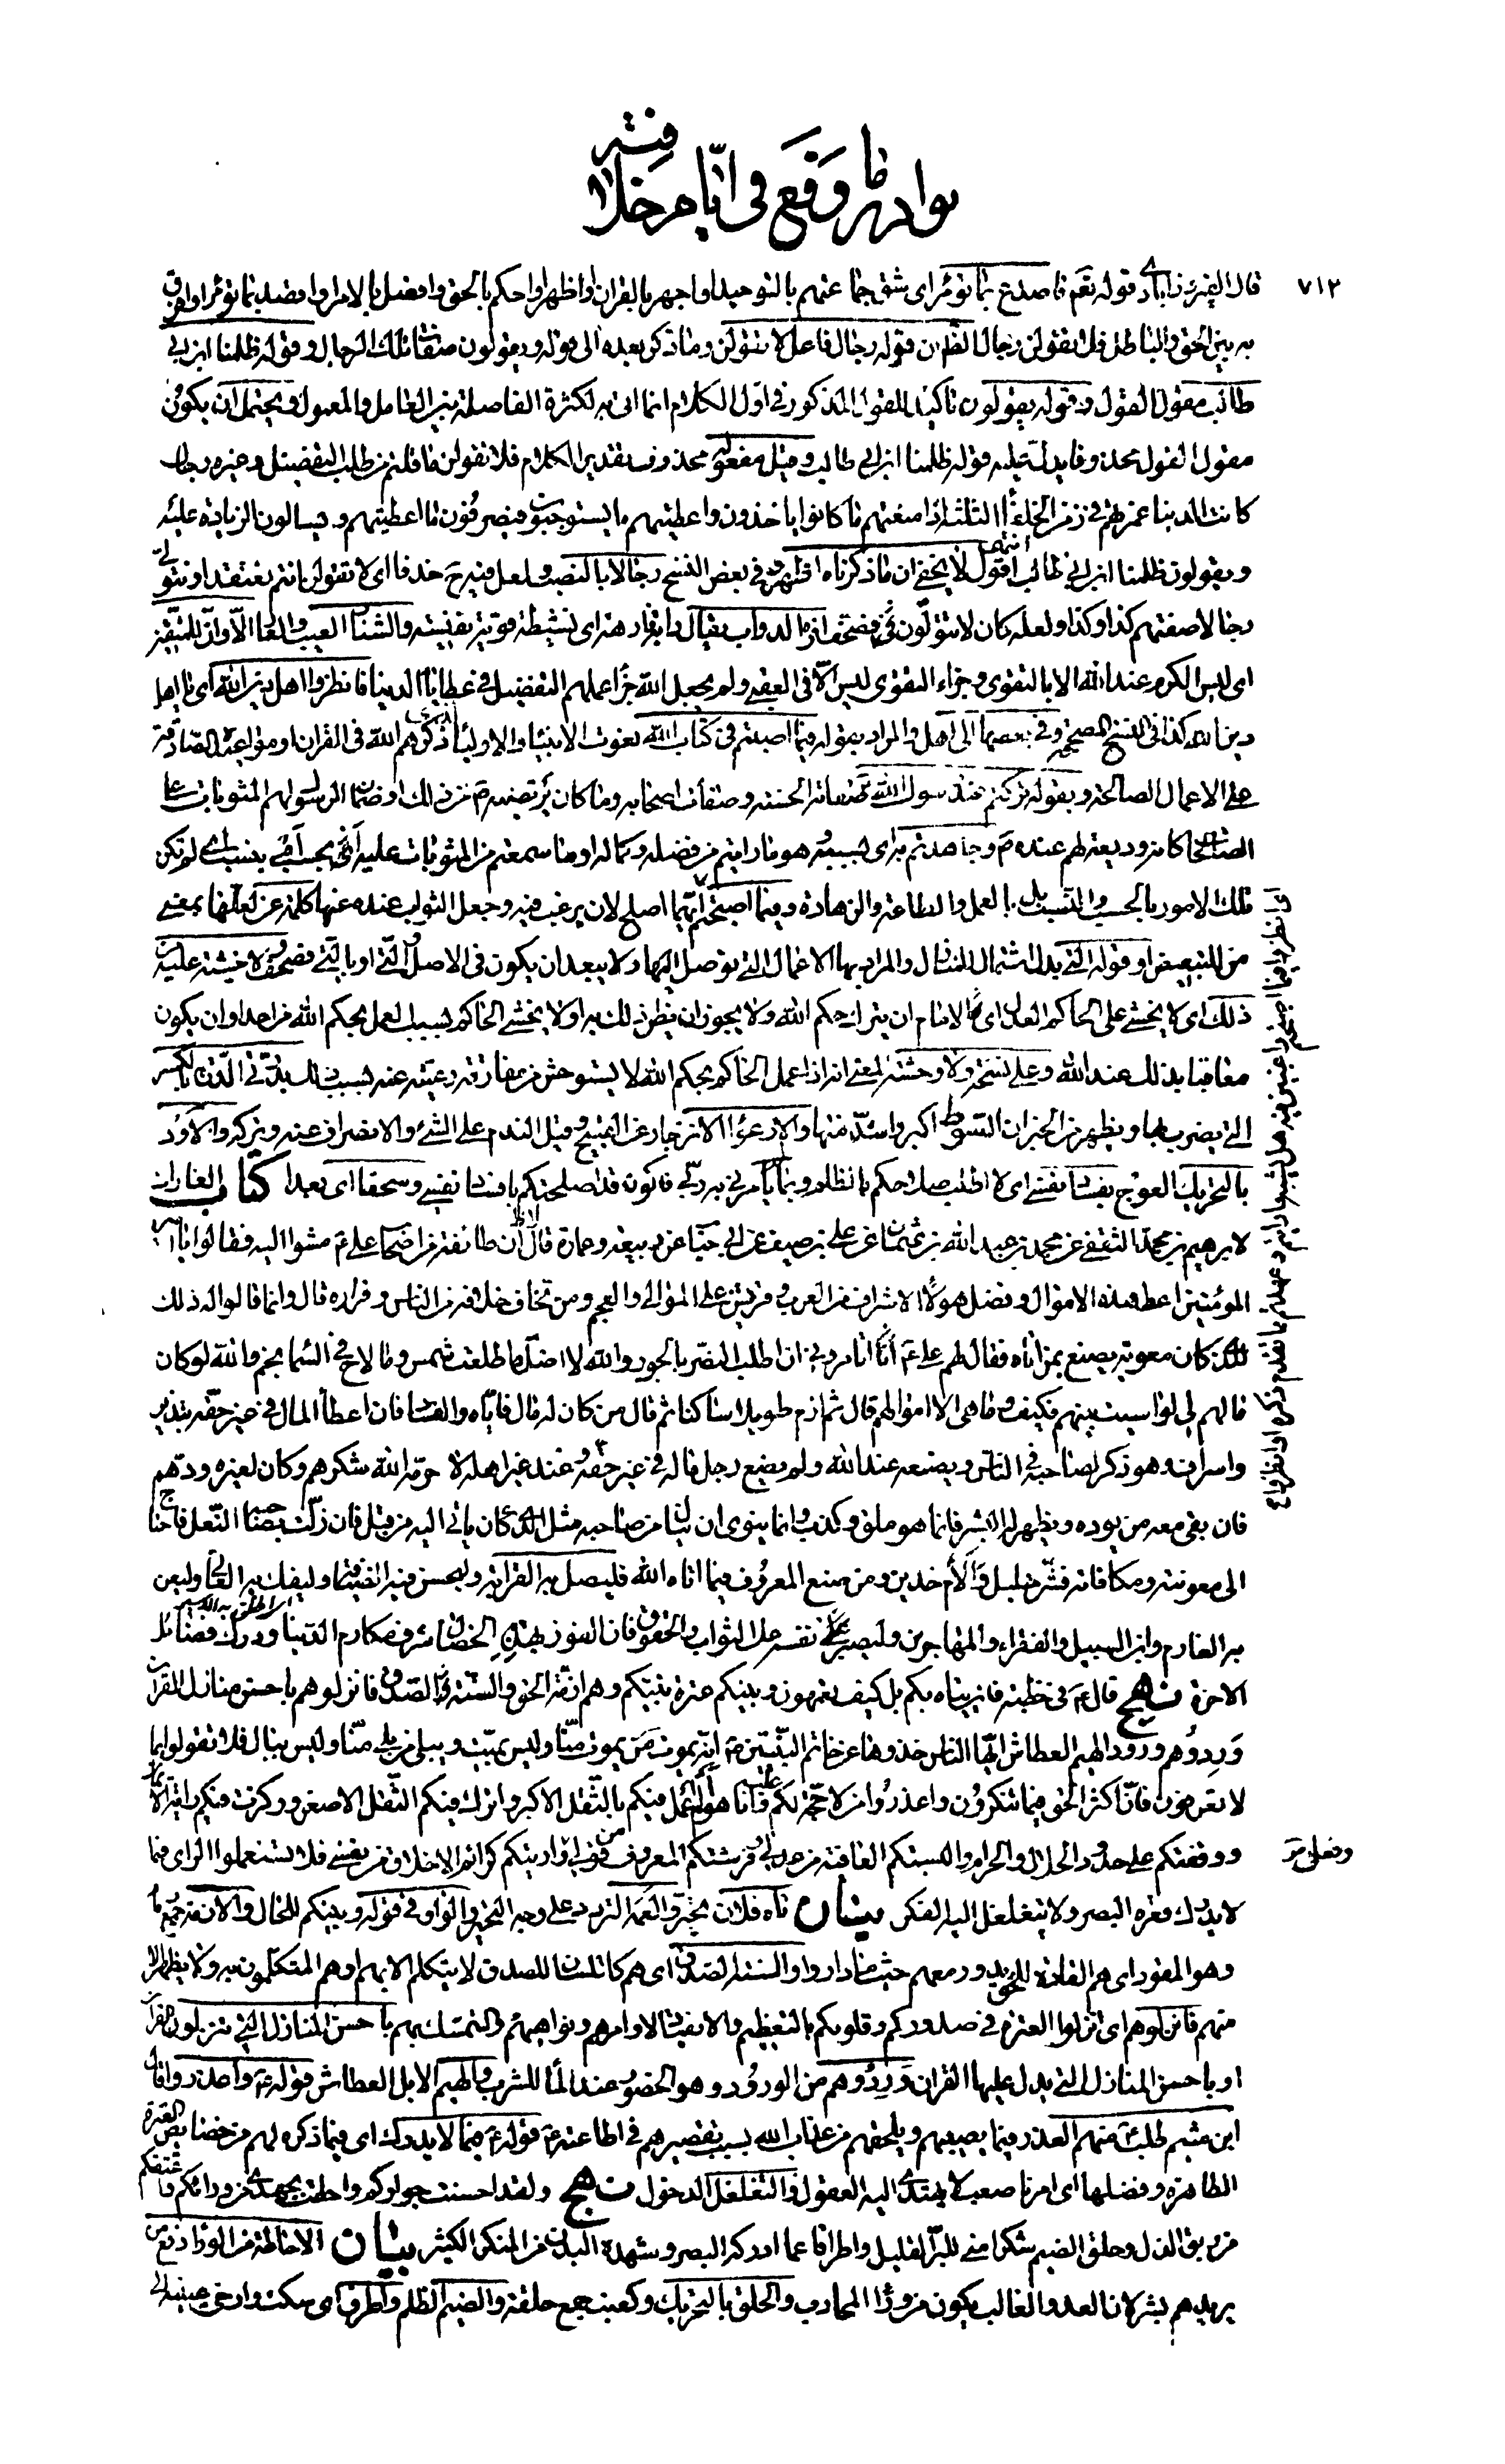 نوادر ما وقع في ايّام خلافته
٧١٢
قال الفيروزابادي قوله تعم فاصدع بما تؤمر اى شق جماعتهم بالتوحيد او اجهر بالقران او اظهر او احكم بالحق وافصل بالامر او اقصد بما تؤمر او افرق
به بين الحق والباطل فلا يقولن رجال الظاهر ان قوله رجال فاعل لا يقولن وما ذكر بعده الى قوله ويقولون صفات تلك الرجال وقوله ظلمنا ابن ابي
طالب مقول القول وقوله يقولون تاكيد للقول المذكور في اول الكلام انما اتى به لكثرة الفاصلة بين العامل والمعمول ويحتمل ان يكون
مقول القول محذوفا يدل عليه قوله ظلمنا ابن ابي طالب وقيل مفعوله محذوف تقدير الكلام فلا تقولن ما قلتم من طلب التفضيل وغيره رجال
كانت الدنيا غمرتهم في زمن الخلفاء الثلثة اذا منعتهم ما كانوا ياخذون واعطيتهم ما يستوجبون فيصرفون ما اعطيتهم ويسالون الزيادة عليه
ويقولون ظلمنا ابن ابي طالب انتهى اقول لا يخفى ان ما ذكرناه اظهر وفي بعض النسخ رجالا بالنصب ولعل فيه ح حذفا اى لا تقولن انتم نعتقد او نتولى
رجالا صفتهم كذا وكذا ولعله كان لا تتولون فصحف الدواب يقال دابة فارهة اى نشيطة قوية نفيسة والشنار العيب والعار الا وان للمتقين
اى ليس الكرم عند الله الا بالتقوى وجزاء التقوى ليس الا في العقبى ولم يجعل الله جزاء عملهم التفضيل في عطايا الدنيا فانظروا اهل دين الله اى يا اهل
دين الله كذا في النسخ المصححة وفي بعضها الى اهل والمراد بقوله فيما اصبتم في كتاب الله نعوت الانبياء والاولياء الذين ذكرهم الله في القران او مواعيده الصادقة
على الاعمال الصالحة وبقوله تركتم عند رسول الله صفاته الحسنة وصفات اصحابه وما كان يرتضيه ص من ذلك او ضمان الرسول لهم المثوبات على
الصالحات كانه وديعة لهم عنده ص وجاهدتم به اى بسببه وهو ما رايتم من فضله وكماله او ما سمعتم من المثوبات عليه ابحسب ام بنسب اى لم تكن
تلك الامور بالحسب والنسب بل بالعمل والطاعة والزهادة وفيما اصبحتم
من للتبعيض او قوله التي بدل اشتمال للمنازل والمراد بها الاعمال التي توصل اليها ولا يبعد ان يكون في الاصل
ذلك اى لا يخشى على الحاكم العدل اى الامام ان يترك حكم الله ولا يجوز ان يظن ذلك به او لا يخشى الحاكم بسبب العمل بحكم الله من احد او ان يكون
معاقبا بذلك عند الله وعلى نسخة ولا وحشة المعنى انه اذا عمل الحاكم بحكم الله لا يستوحش من مفارقة رعيته عنه بسبب ذلك الدرة بالكسر
التي يضرب بها ويظهر من الخبر ان السوط اكبر واشد منها والارعواء الانزجار عن القبيح وقيل الندم على الشئ والانصراف عنه وتركه والاود
بالتحريك العوج بفساد نفسي اى لا اطلب صلاحكم بالظلم وبما لم يامرني به ربي فاكون قد اصلحتكم بافساد نفسي وسحقا اى بعدا كتاب الغارات
لابرهيم بن محمد الثقفي عن محمد بن عبد الله بن عثمان عن علي بن سيف عن ابي حباب عن ربيعة وعمارة قالا ان طائفة من اصحاب علي ع مشوا اليه فقالوا يا امير
المؤمنين اعط هذه الاموال وفضل هؤلاء الاشراف من العرب وقريش على الموالي والعجم ومن تخاف خلافه من الناس وفراره قال وانما قالوا له ذلك
للذي كان معوية يصنع بمن اتاه فقال لهم علي ع اتامروني ان اطلب النصر بالجور والله لا افعل ما طلعت شمس وما لاح في السماء نجم والله لو كان
مالهم لي لواسيت بينهم فكيف وما هي الا اموالهم قال ثم ازم طويلا ساكتا ثم قال من كان له مال فاياه والفساد فان اعطاء المال في غير حقه تبذير
واسراف وهو ذكر لصاحبه في الناس ويضعه عند الله ولم يضع رجل ماله في غير حقه وعند غير اهله الا حرمه الله شكرهم وكان لغيره ودهم
فان بقي معه من يوده ويظهر له البشر فانما هو ملق وكذب وانما ينوي ان ينال من صاحبه مثل الذي كان ياتي اليه من قبل فان زلت بصاحبه النعل فاحتاج
الى معونته ومكافاته فشر خليل والأم خدين ومن صنع المعروف فيما اتاه الله فليصل به القرابة وليحسن فيه الضيافة وليفك به العاني وليعن
به الغارم وابن السبيل والفقراء والمهاجرين وليصبر نفسه على الثواب والحقوق فان الفوز بهذه الخصال شرف مكارم الدنيا ودرك فضائل
الاخرة نهج قال ع في خطبة فاين يتاه بكم بل كيف تعمهون وبينكم عترة نبيكم وهم ازمة الحق والسنة الصدق فانزلوهم باحسن منازل القران
وردوهم ورود الهيم العطاش ايها الناس خذوها عن خاتم النبيين ص انه يموت من يموت منا وليس بميت ويبلى من بلي منا وليس ببال فلا تقولوا بما
لا تعرفون فان اكثر الحق فيما تنكرون واعذروا من لا حجة لكم عليه وانا هو الم اعمل فيكم بالثقل الاكبر واترك فيكم الثقل الاصغر وركزت فيكم راية الايمان
ووقفتكم على حدود الحلال والحرام والبستكم العافية من عدلي وفرشتكم المعروف من قولي وفعلي واريتكم كرائم الاخلاق من نفسي فلا تستعملوا الراى فيما
لا يدرك قعره البصر ولا يتغلغل اليه الفكر بيان تاه فلان تحير والعمه التردد على وجه التحير والواو في قوله وبينكم للحال والازمة جمع زمام
وهو المقود اى هم القادة للحق يدور معهم حيث ما داروا والسنة الصدق اى هم كاللسان للصدق لا يتكلم الا بهم او هم المتكلمون به ولا يظهر الا
منهم فانزلوهم اى انزلوا العترة في صدوركم وقلوبكم بالتعظيم والانقياد لاوامرهم ونواهيهم والتمسك بهم باحسن المنازل التي تنزلون القران
او باحسن المنازل التي يدل عليها القران وردوهم من الورود وهو الحضور عند الماء للشرب والهيم الابل العطاش قوله ع واعذروا قال
ابن ميثم طلب ع منهم العذر فيما يصيبهم ويلحقهم من عذاب الله بسبب تقصيرهم في اطاعته ع قوله ع فيما لا يدرك اى فيما ذكره لهم من خصائص العترة
الطاهرة وفضلها اى امرنا صعب لا يهتدي اليه العقول والتغلغل الدخول نهج ولقد احسنت جواركم واحطت بجهدي من ورائكم واعتقتكم
من ربق الذل وحلق الضيم شكرا مني للبر القليل واطراقا عما ادركه البصر وشهده البدن من المنكر الكثير بيان الاحاطة من الوراء دفع من
يريدهم بشر لان العدو الغالب يكون من وراء المحارب والحلق بالتحريك وكعنب جمع حلقة والضيم الظلم واطرق اى سكت وارخى عينيه الى
وفعلي